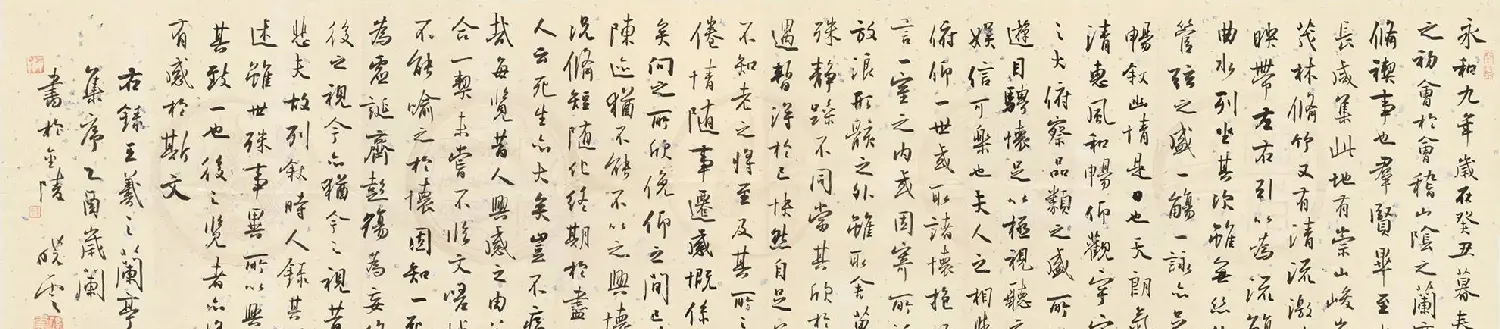 永和九年歲在癸丑暮春
之初會於會稽山陰之蘭亭
脩禊事也群賢畢至
長咸集此地有崇山峻
茂林脩竹又有清流激
映帶左右引以為流觴
曲水列坐其次雖無絲
管弦之盛一觴一詠亦足
暢敘幽情是日也天朗氣
清惠風和暢仰觀宇宙
之大俯察品類之盛所
遊目騁懷足以極視聽之
娛信可樂也夫人之相與
俯仰一世或取諸懷抱
言一室之內或因寄所託
放浪形骸之外雖取舍萬
殊靜躁不同當其欣於
遇暫得於己怏然自足
不知老之將至及其所之
倦情隨事遷感慨係
矣向之所欣俛仰之間已
陳迹猶不能不以之興懷
況脩短隨化終期於盡
人云死生亦大矣豈不痛
哉每覽昔人興感之由
合一契未嘗不臨文嗟
不能喻之於懷固知一死
為虛誕齊彭殤為妄作
後之視今亦猶今之視昔
悲夫故列敘時人錄其
述雖世殊事異所以興
其致一也後之覽者亦將
有感於斯文
右錄王羲之蘭亭
集序乙酉歲闌
書於金陵 曉雲